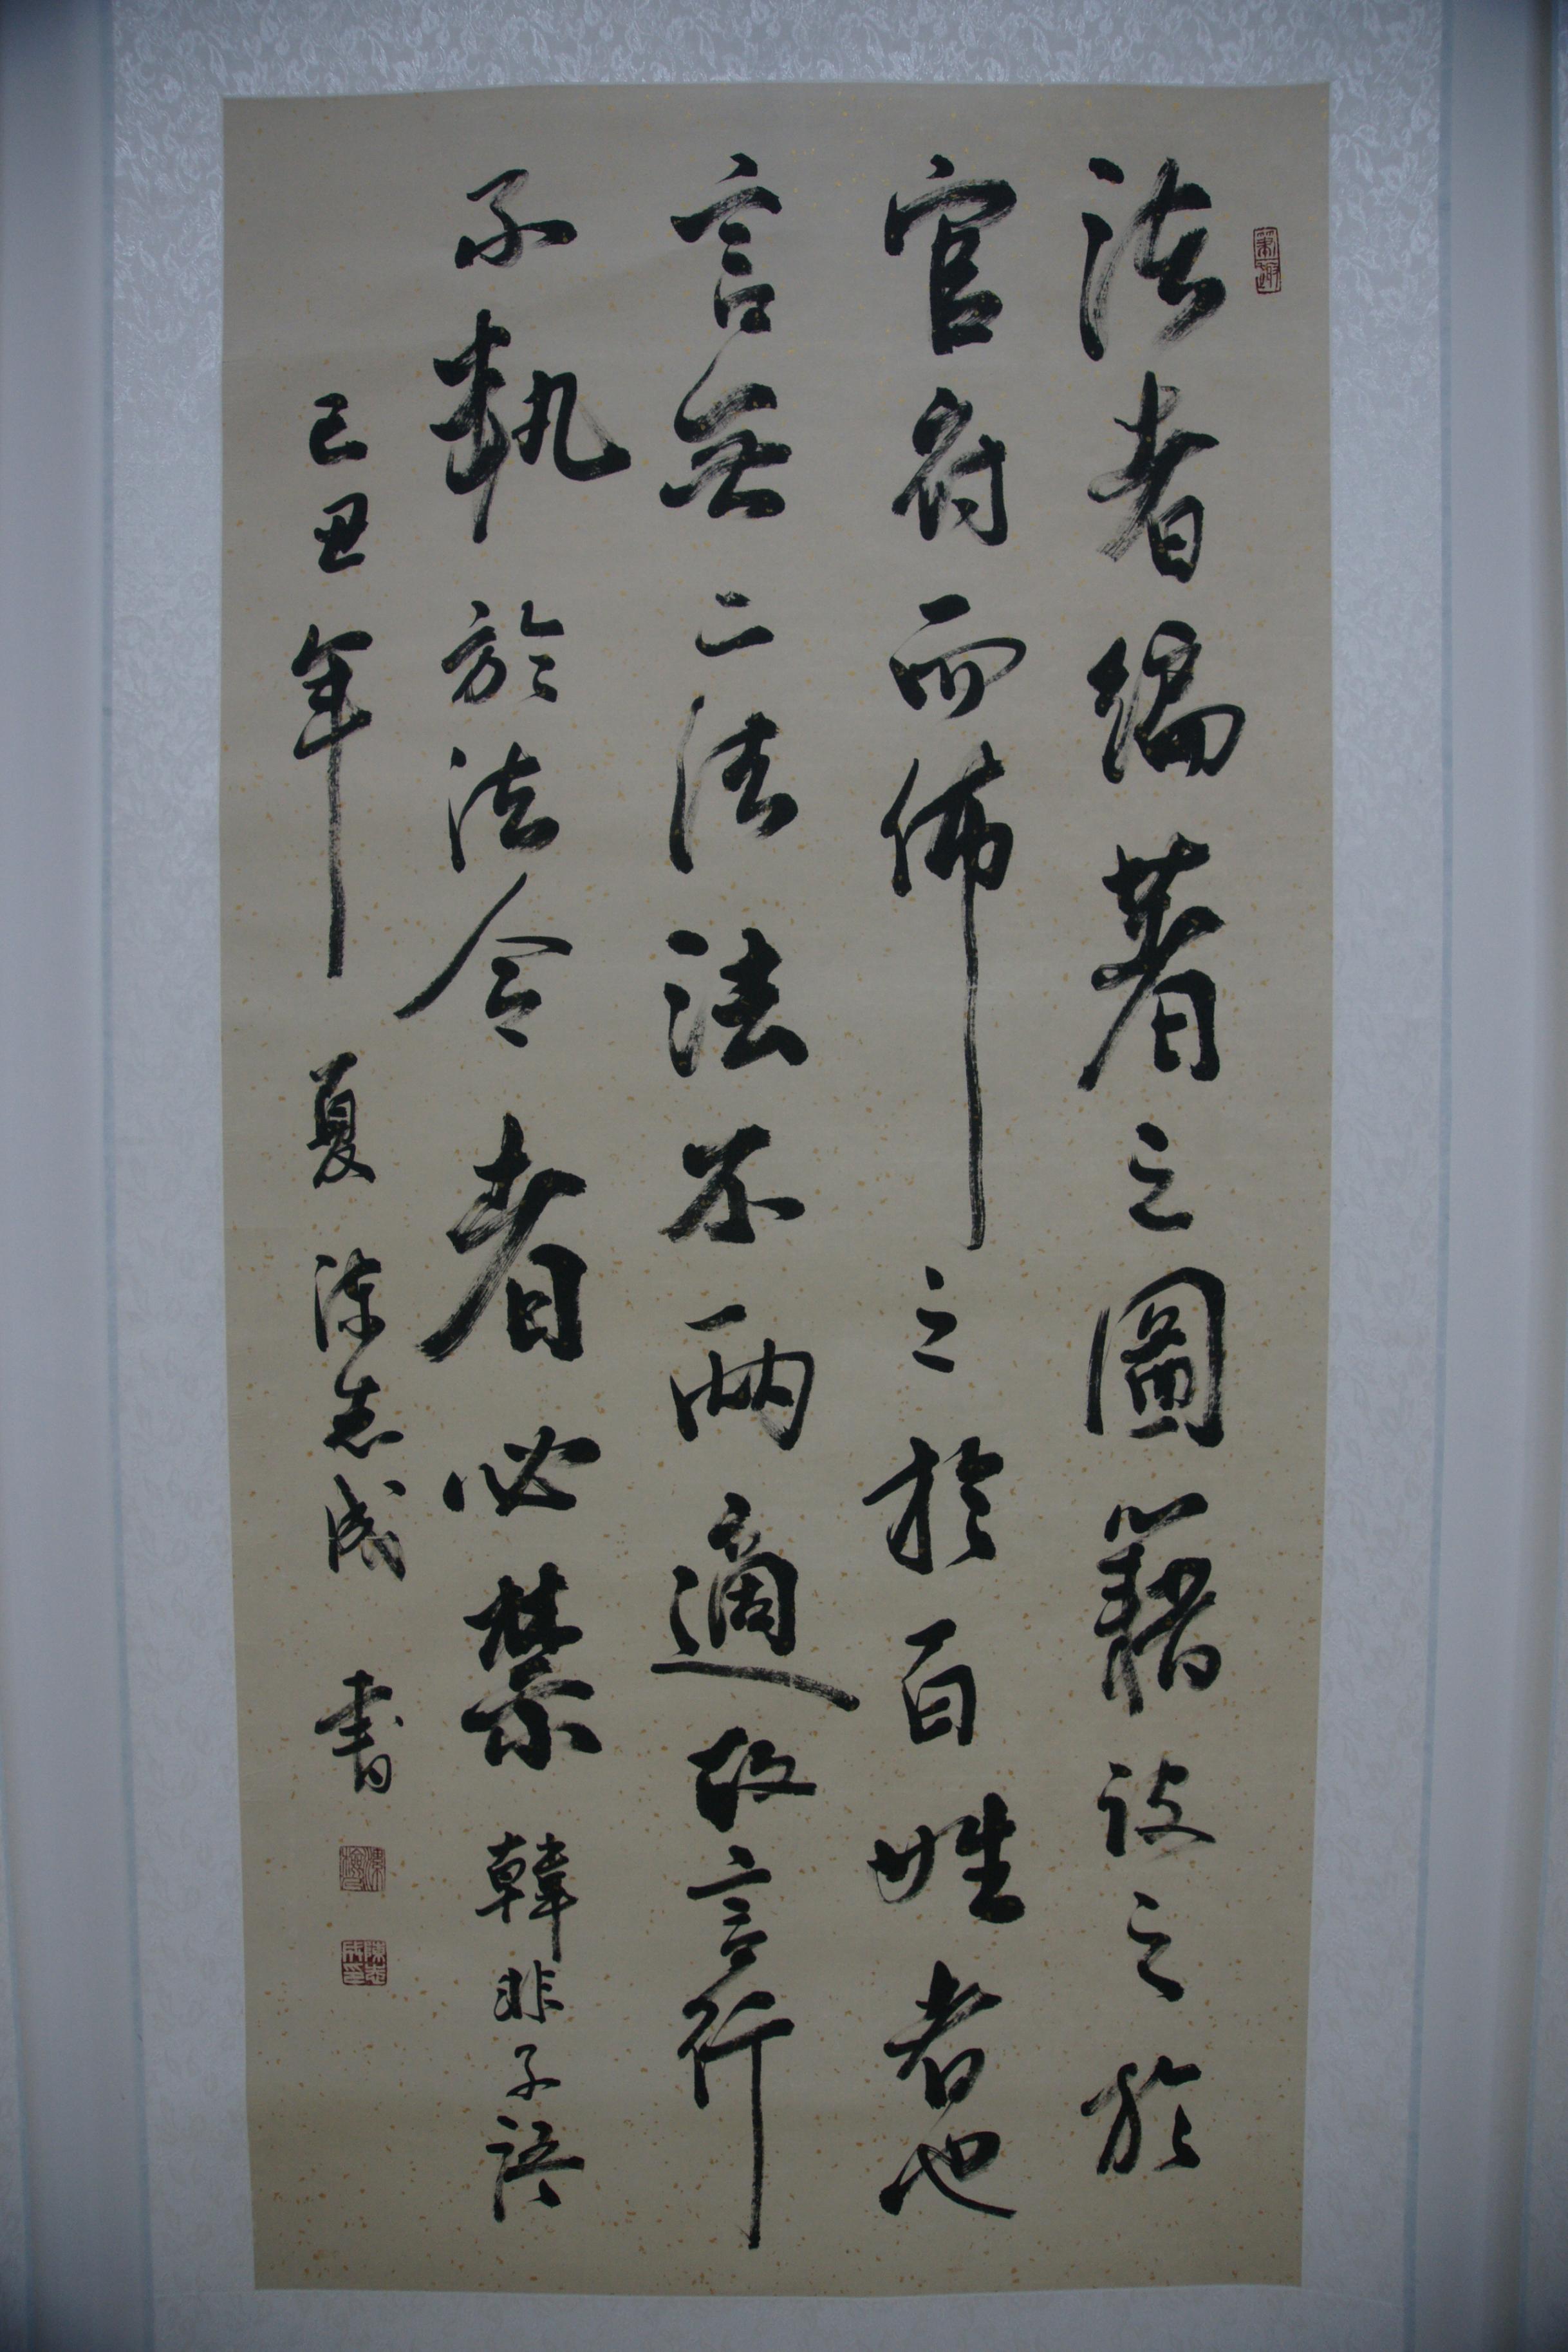 法者編著之圖籍設之於
官府而佈之於百姓者也
言無二法法不兩適故言行
不軌於法令者必禁 韓非子語
己丑年 夏 陳志成 書